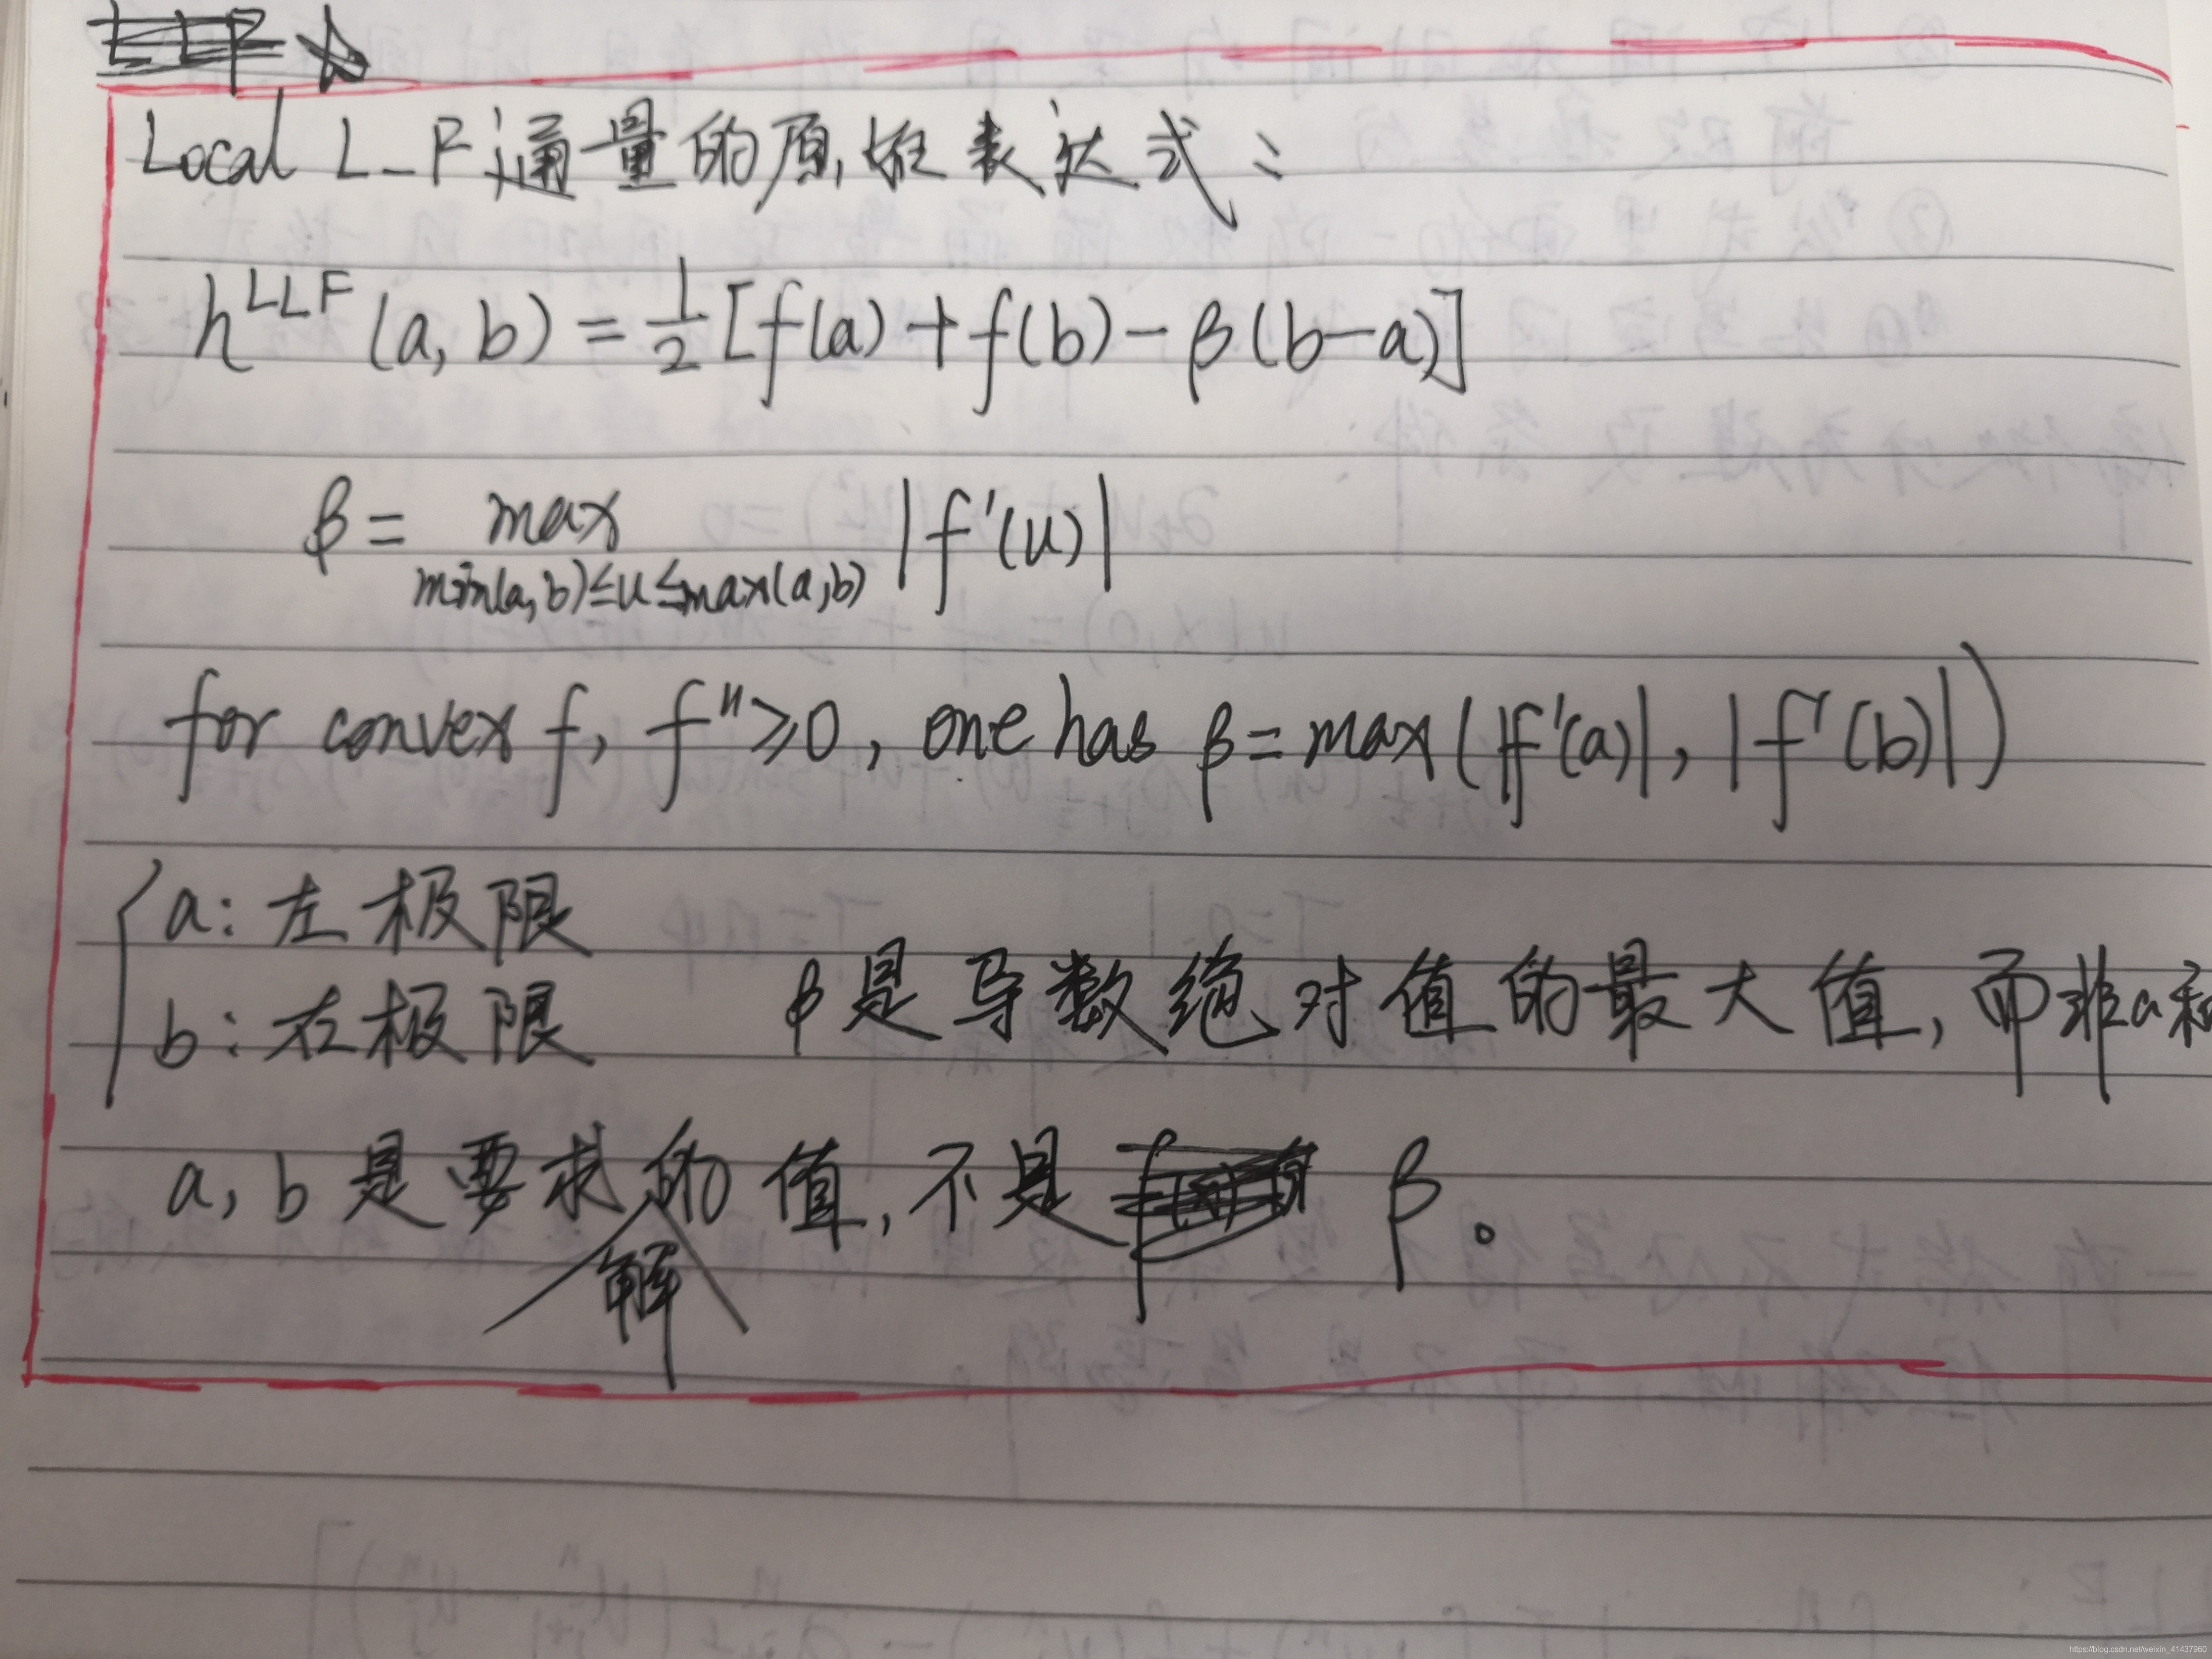 Local L-F通量的原始表达式：
h^{LLF}(a, b) = \frac{1}{2}[f(a) + f(b) - β(b-a)]
β = max_{min(a,b)≤u≤max(a,b)} |f'(u)|
for convex f, f''≥0, one has β = max(|f'(a)|, |f'(b)|)
a: 左极限
b: 右极限
β是导数绝对值的最大值, 而非a和
a, b是要求解的值, 不是 β。
https://blog.csdn.net/weixin_41437960